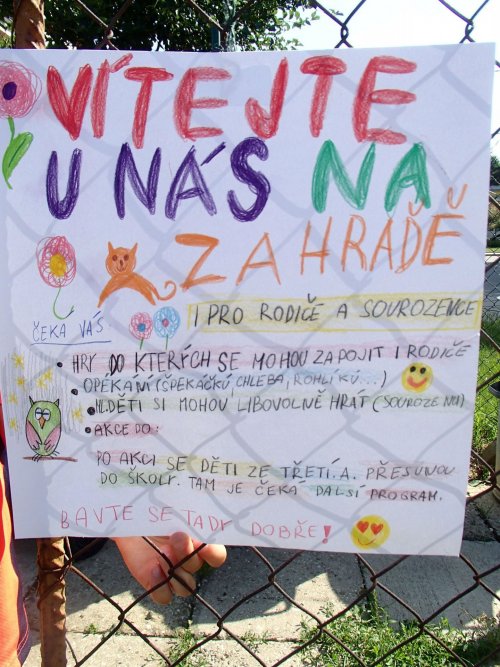 VÍTEJTE
U NÁS NA
ZAHRADĚ
I PRO RODIČE A SOUROZENCE
ČEKÁ VÁS
• HRY DO KTERÝCH SE MOHOU ZAPOJIT I RODIČE
• OPÉKÁNÍ (ŠPEKÁČKŮ, CHLEBA, ROHLÍKŮ...)
• DĚTI SI MOHOU LIBOVOLNĚ HRÁT (SOUROZENCI)
• AKCE DO:
PO AKCI SE DĚTI ZE TŘETÍ.A. PŘESUNOU
DO ŠKOLY. TAM JE ČEKÁ DALŠÍ PROGRAM.
BAVTE SE TADY DOBŘE!